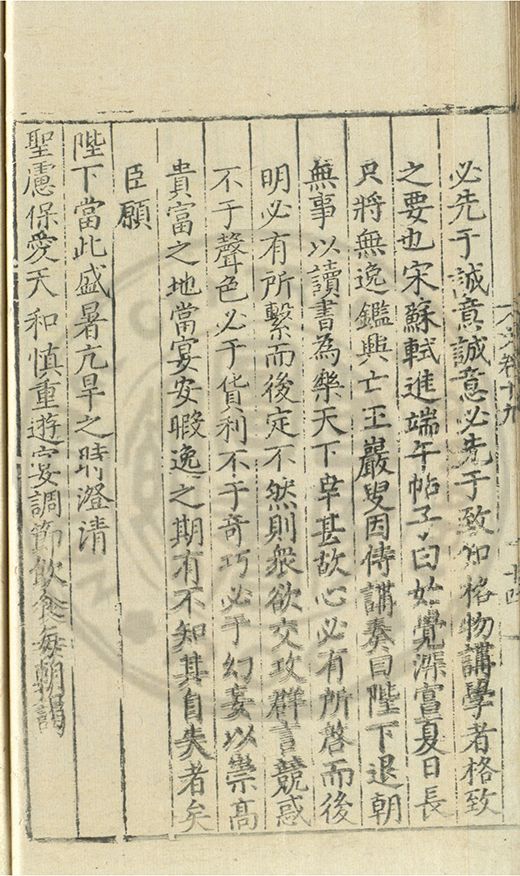 必先于誠意誠意必先于致知格物講學者格致
之要也宋蘇軾進端午帖子曰始覺深宮夏日長
只將無逸鑑興亡王巖叟因侍講奏曰陛下退朝
無事以讀書為樂天下幸甚故心必有所啓而後
明必有所繫而後定不然則衆欲交攻群言競惑
不于聲色必于貨利不于奇巧必于幻妄以崇高
貴富之地當宴安暇逸之期有不知其自失者矣
臣願
陛下當此盛暑亢旱之時澄清
聖慮保愛天和慎重遊宴調節飲食每朝謁